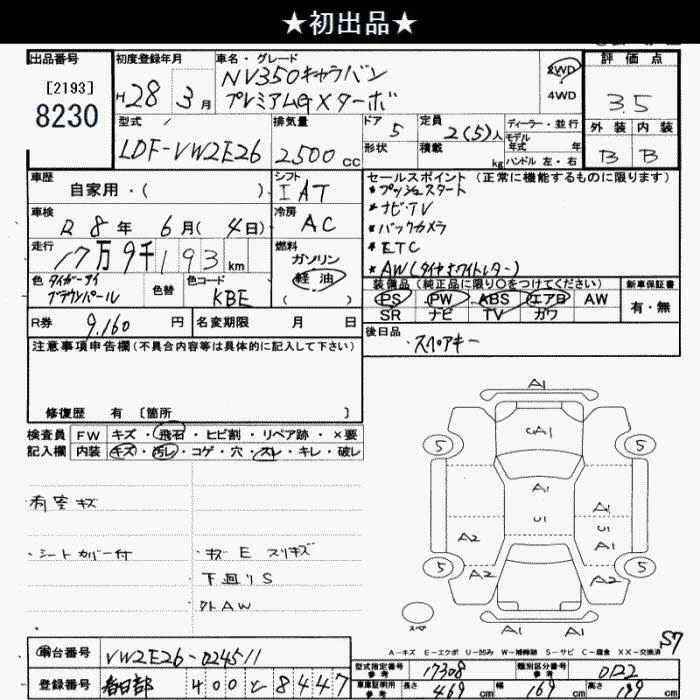 ★初出品★
出品番号 初度登録年月 車名・グレード 評価点
[2193]
8230
H28年 3月
NV350キャラバン
プレミアムGXターボ
2WD
4WD
3.5
型式 排気量 ドア 定員 ディーラー・並行 外装 内装
LDF-VW2E26 2500cc 5 2(5)人 モデル年式 年 B B
形状 積載 kg ハンドル 左・右
車歴 シフト セールスポイント(正常に機能するものに限ります)
自家用・( ) IAT *プッシュスタート
車検 冷房 *ナビ・TV
R8年 6月(4日) AC *バックカメラ
走行 燃料 *ETC
17万9千193km ガソリン
軽油
( )
*AW(タイヤホワイトレター)
色 タイガーアイ 色替 色コード
ブラウンパール KBE
装備品(純正品に限り○をつけてください) 新車保証書
PS PW ABS エアB AW 有・無
SR ナビ TV カワ
R券 9,160円 名変期限 月 日
後日品 スペアキー
注意事項申告欄(不具合内容等は具体的に記入して下さい)
修復歴 有 [箇所 ]
検査員 FW キズ・飛石・ヒビ割・リペア跡・×要
記入欄 内装 キズ・汚レ・コゲ・穴・スレ・キレ・破レ
荷室キズ
・シートカバー付 ・キズE スリキズ
下回りS
外AW
A1
UA1
5 5
A1
U1
A1
U1
A1
A2
5 5
A2 A2
スペア
A1 A1
S7
A-キズ E-エクボ U-凹み W-補修跡 S-サビ C-腐食 XX-交換済
車台番号 VW2E26-024511
登録番号 春日部 400 と 8447
型式指定番号 参考 17308 類別区分番号 参考 0122
車庫証明用 参考 長さ 469cm 幅 169cm 高さ 199cm